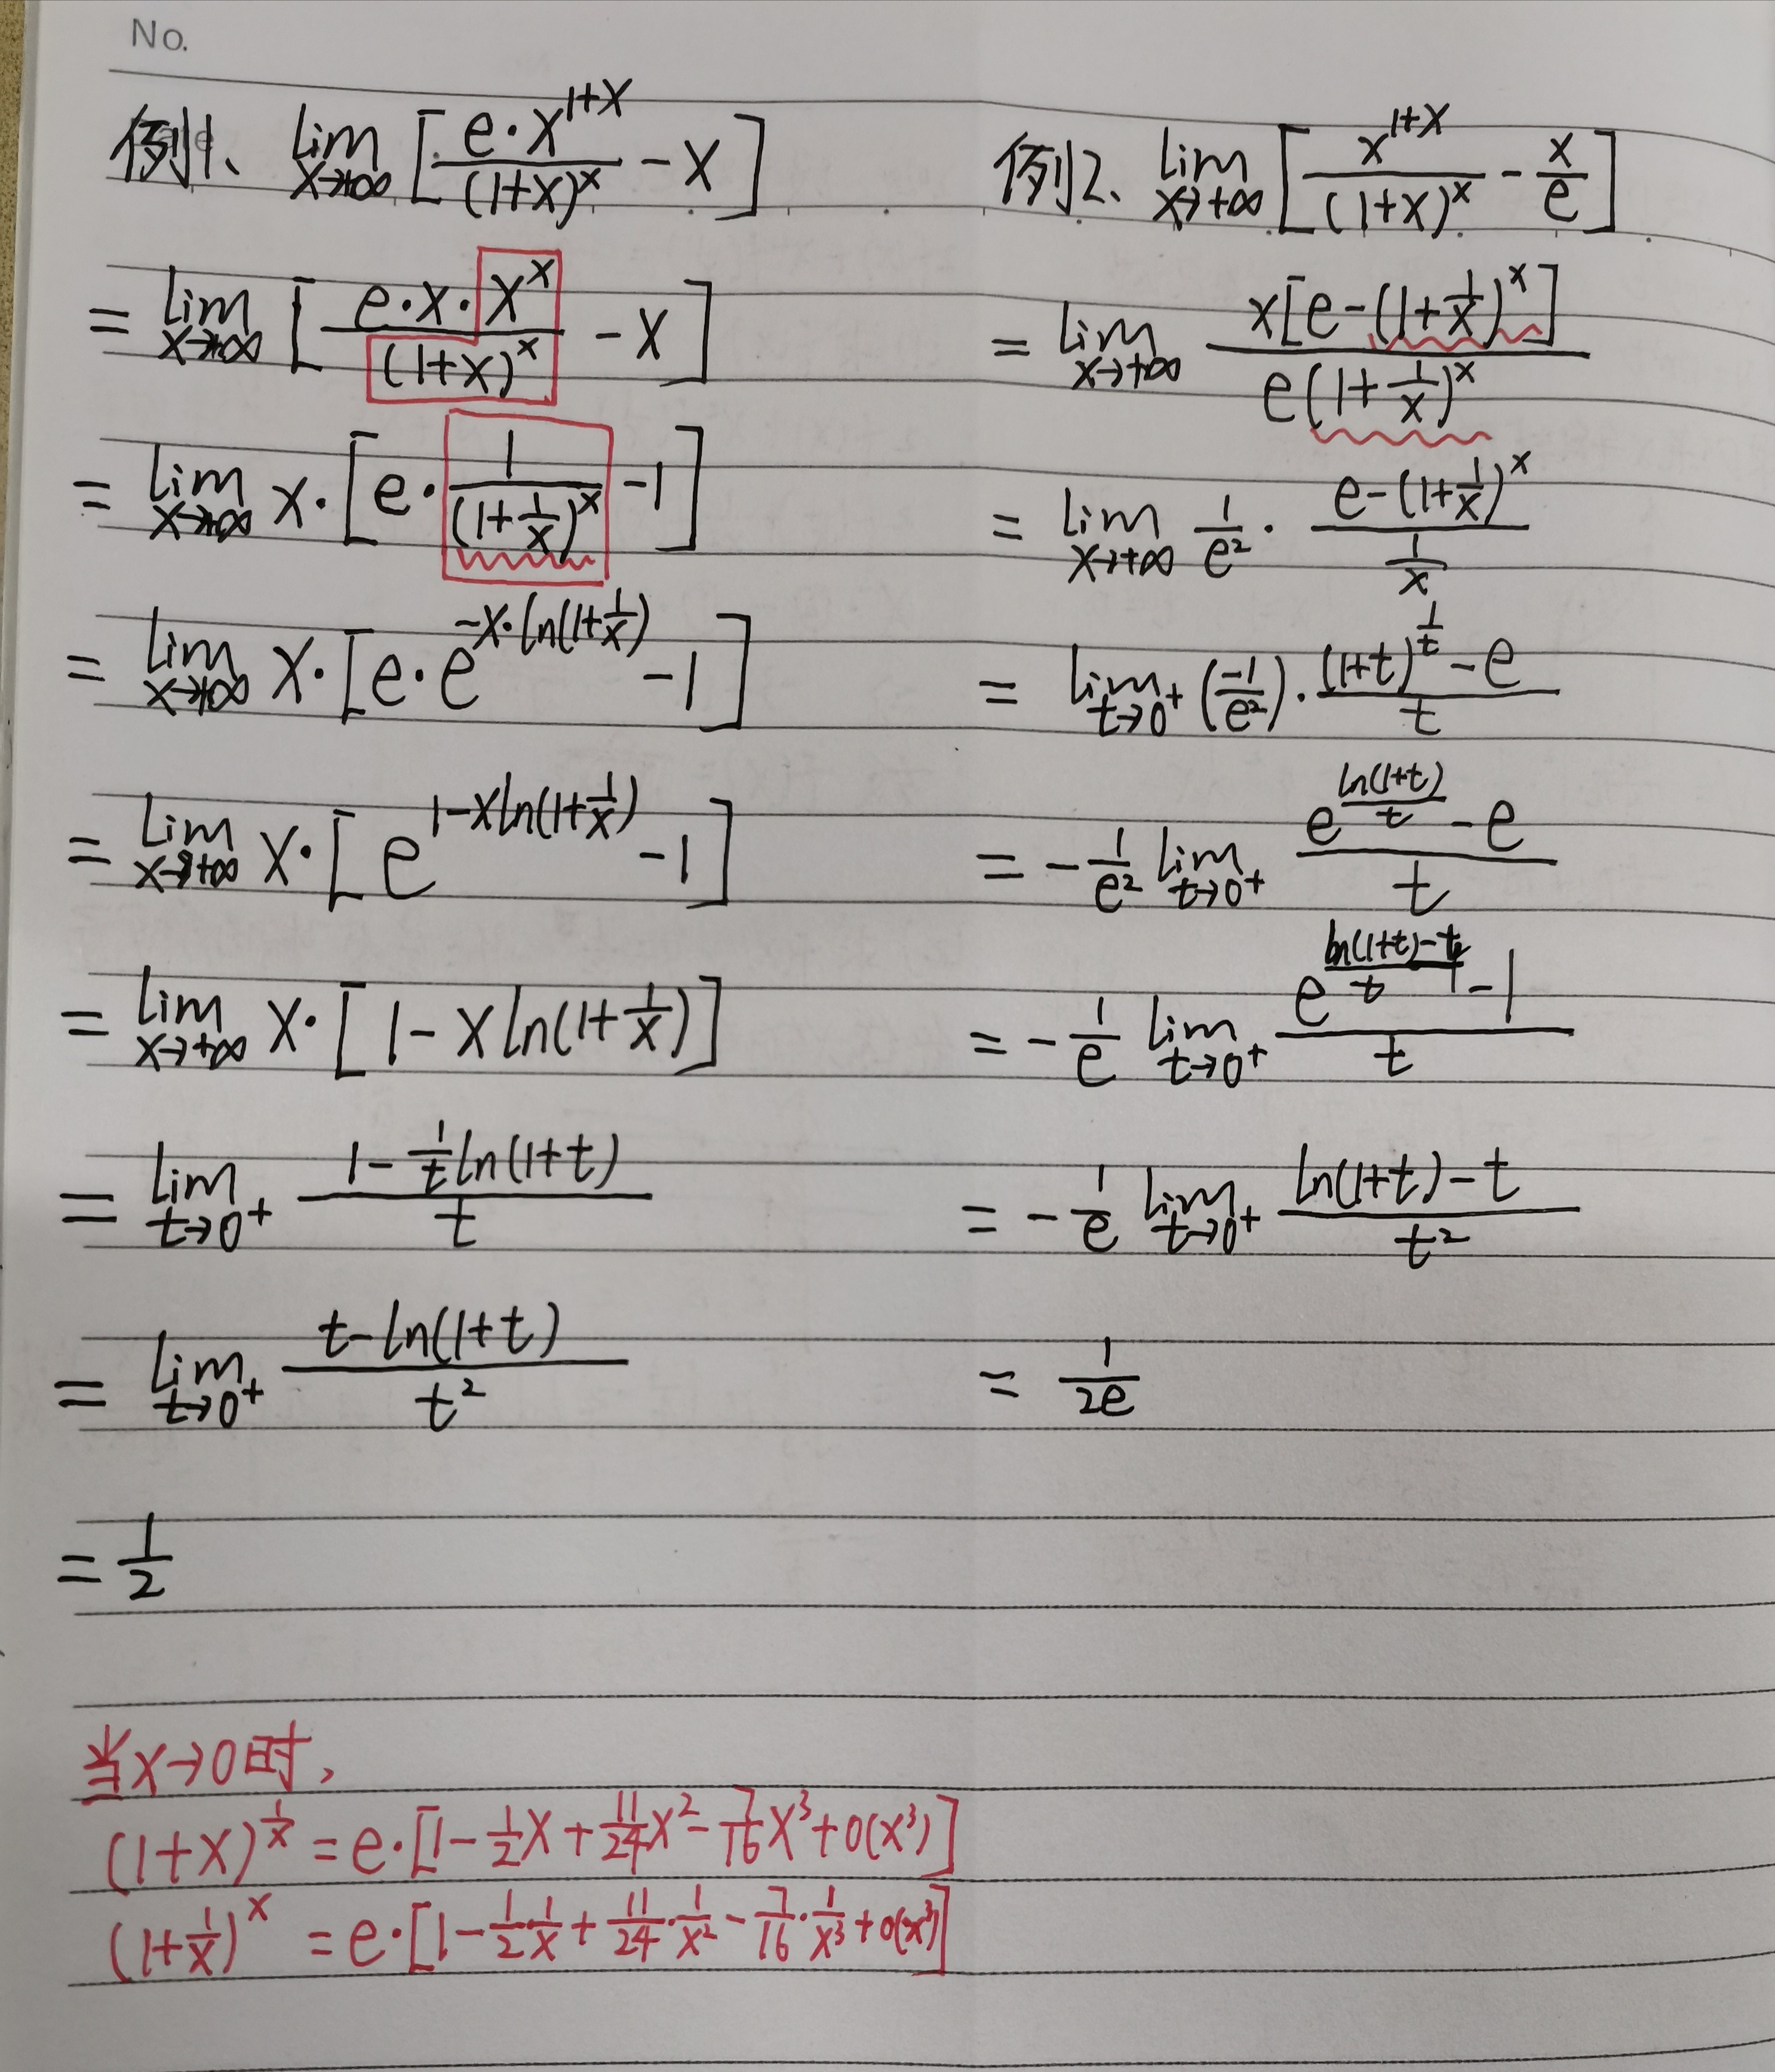 No.
例1、 lim x→+∞ [ e·x^(1+x) / (1+x)^x - x ]
= lim x→+∞ [ e·x·x^x / (1+x)^x - x ]
= lim x→+∞ x·[ e· 1/(1+1/x)^x - 1 ]
= lim x→+∞ x·[ e·e^(-x·ln(1+1/x)) - 1 ]
= lim x→+∞ x·[ e^(1-xln(1+1/x)) - 1 ]
= lim x→+∞ x·[ 1-xln(1+1/x) ]
= lim t→0⁺ (1-1/t ln(1+t)) / t
= lim t→0⁺ (t-ln(1+t)) / t²
= 1/2
例2、 lim x→+∞ [ x^(1+x) / (1+x)^x - x/e ]
= lim x→+∞ x[e-(1+1/x)^x] / e(1+1/x)^x
= lim x→+∞ 1/e² · (e-(1+1/x)^x) / (1/x)
= lim t→0⁺ (-1/e²)·((1+t)^(1/t) - e) / t
= -1/e² lim t→0⁺ (e^(ln(1+t)/t) - e) / t
= -1/e lim t→0⁺ (e^((ln(1+t)-t)/t) - 1) / t
= -1/e lim t→0⁺ (ln(1+t)-t) / t²
= 1/2e
当x→0时,
(1+x)^(1/x) = e·[1-1/2x+11/24x²-7/16x³+o(x³)]
(1+1/x)^x = e·[1-1/2·1/x+11/24·1/x²-7/16·1/x³+o(x³)]